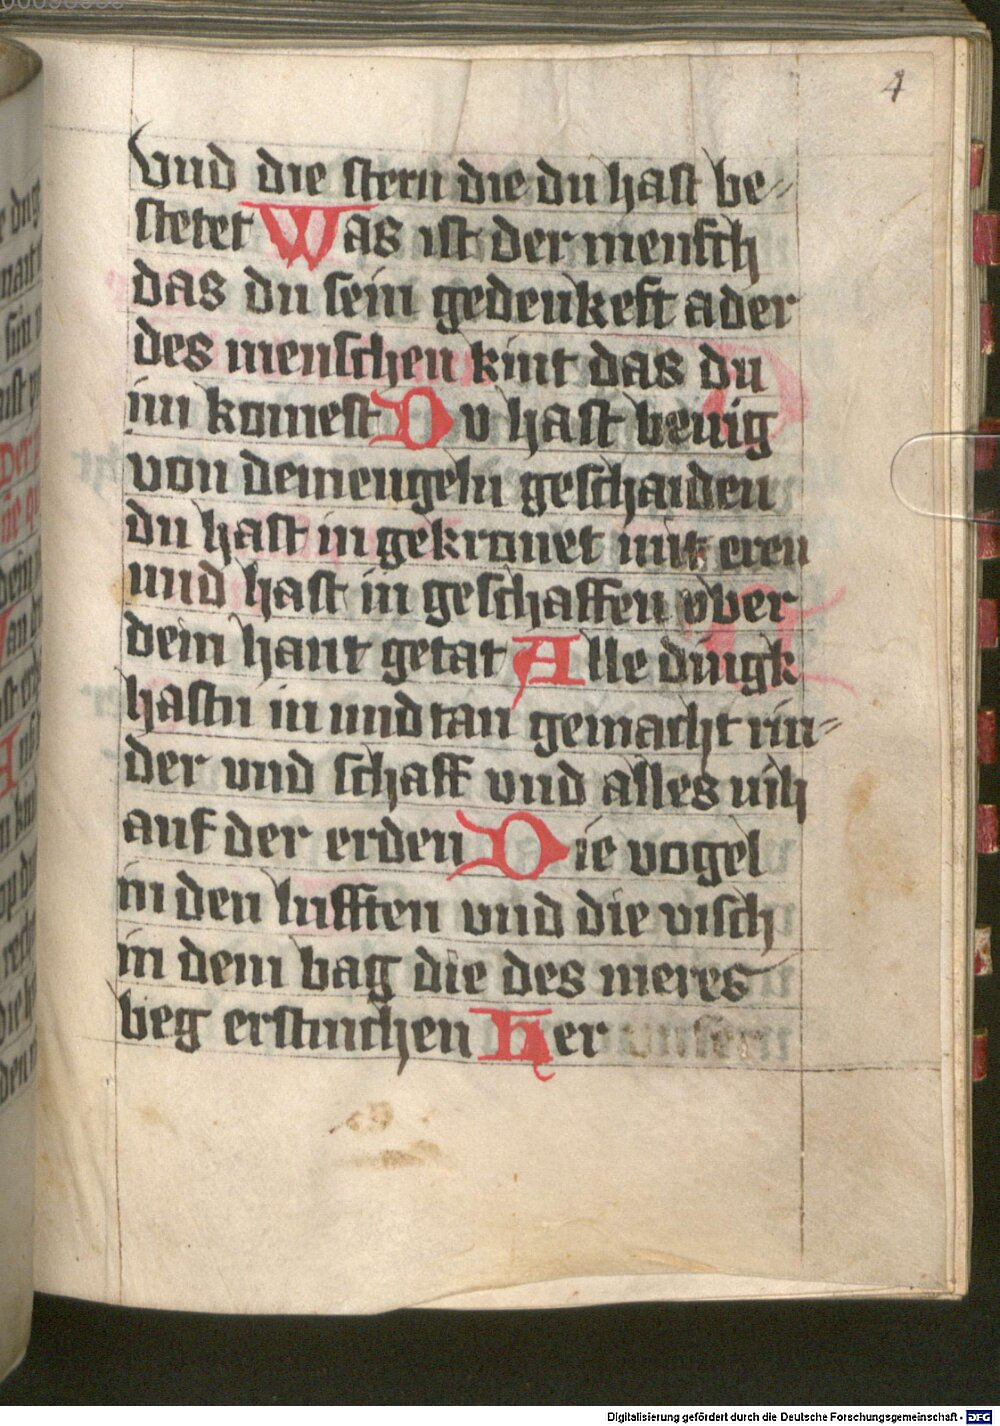 4
vnd die stern die du hast be⸗
stetet Was ist der mensch
das du sein gedenkest ader
des menschen kint das du
im komest Dv hast wenig
von dem engeln geschaiden
du hast in gekronet mit eren
vnd hast in geschaffen vber
dein hant getat Alle dingk
hastu im vndtan gemacht rin⸗
der vnd schaff vnd alles uih
auf der erden Die vogel
in den lufften vnd die visch
in dem bag die des meres
beg erstruchen Her
Digitalisierung gefördert durch die Deutsche Forschungsgemeinschaft - DFG